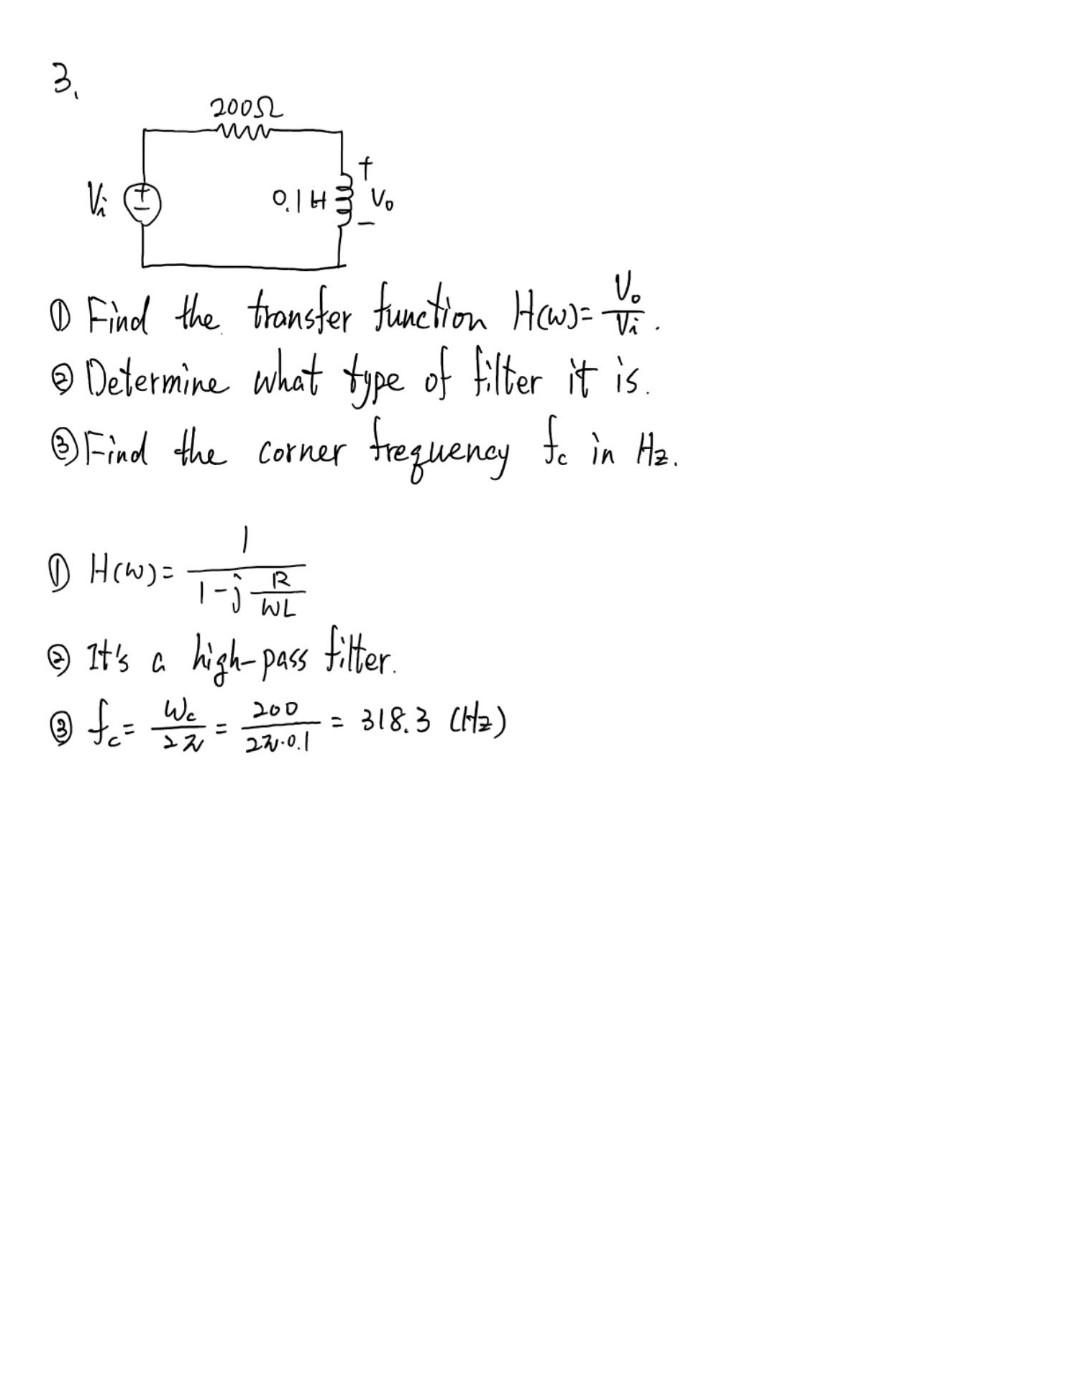 3.
200Ω
Vi + −
0.1H
+ Vo −
① Find the transfer function H(w)= Vo/Vi .
② Determine what type of filter it is.
③ Find the corner frequency fc in Hz.
① H(w)= 1/(1-j R/WL)
② It's a high-pass filter.
③ fc= Wc/2π = 200/2π·0.1 = 318.3 (Hz)